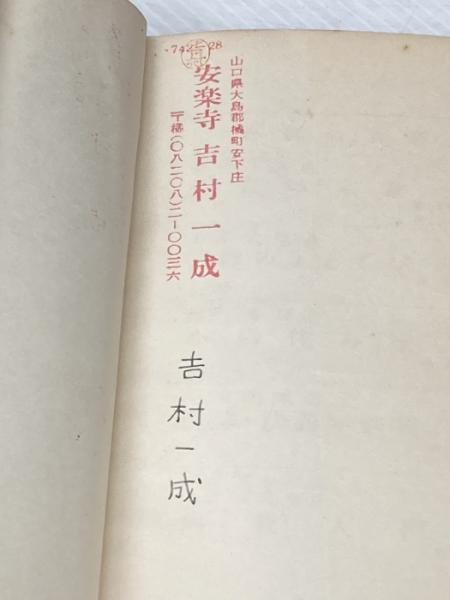 742-28
吉村
山口県大島郡橘町安下庄
安楽寺 吉村一成
〒橘(〇八二〇八)二―〇〇三六
吉村一成